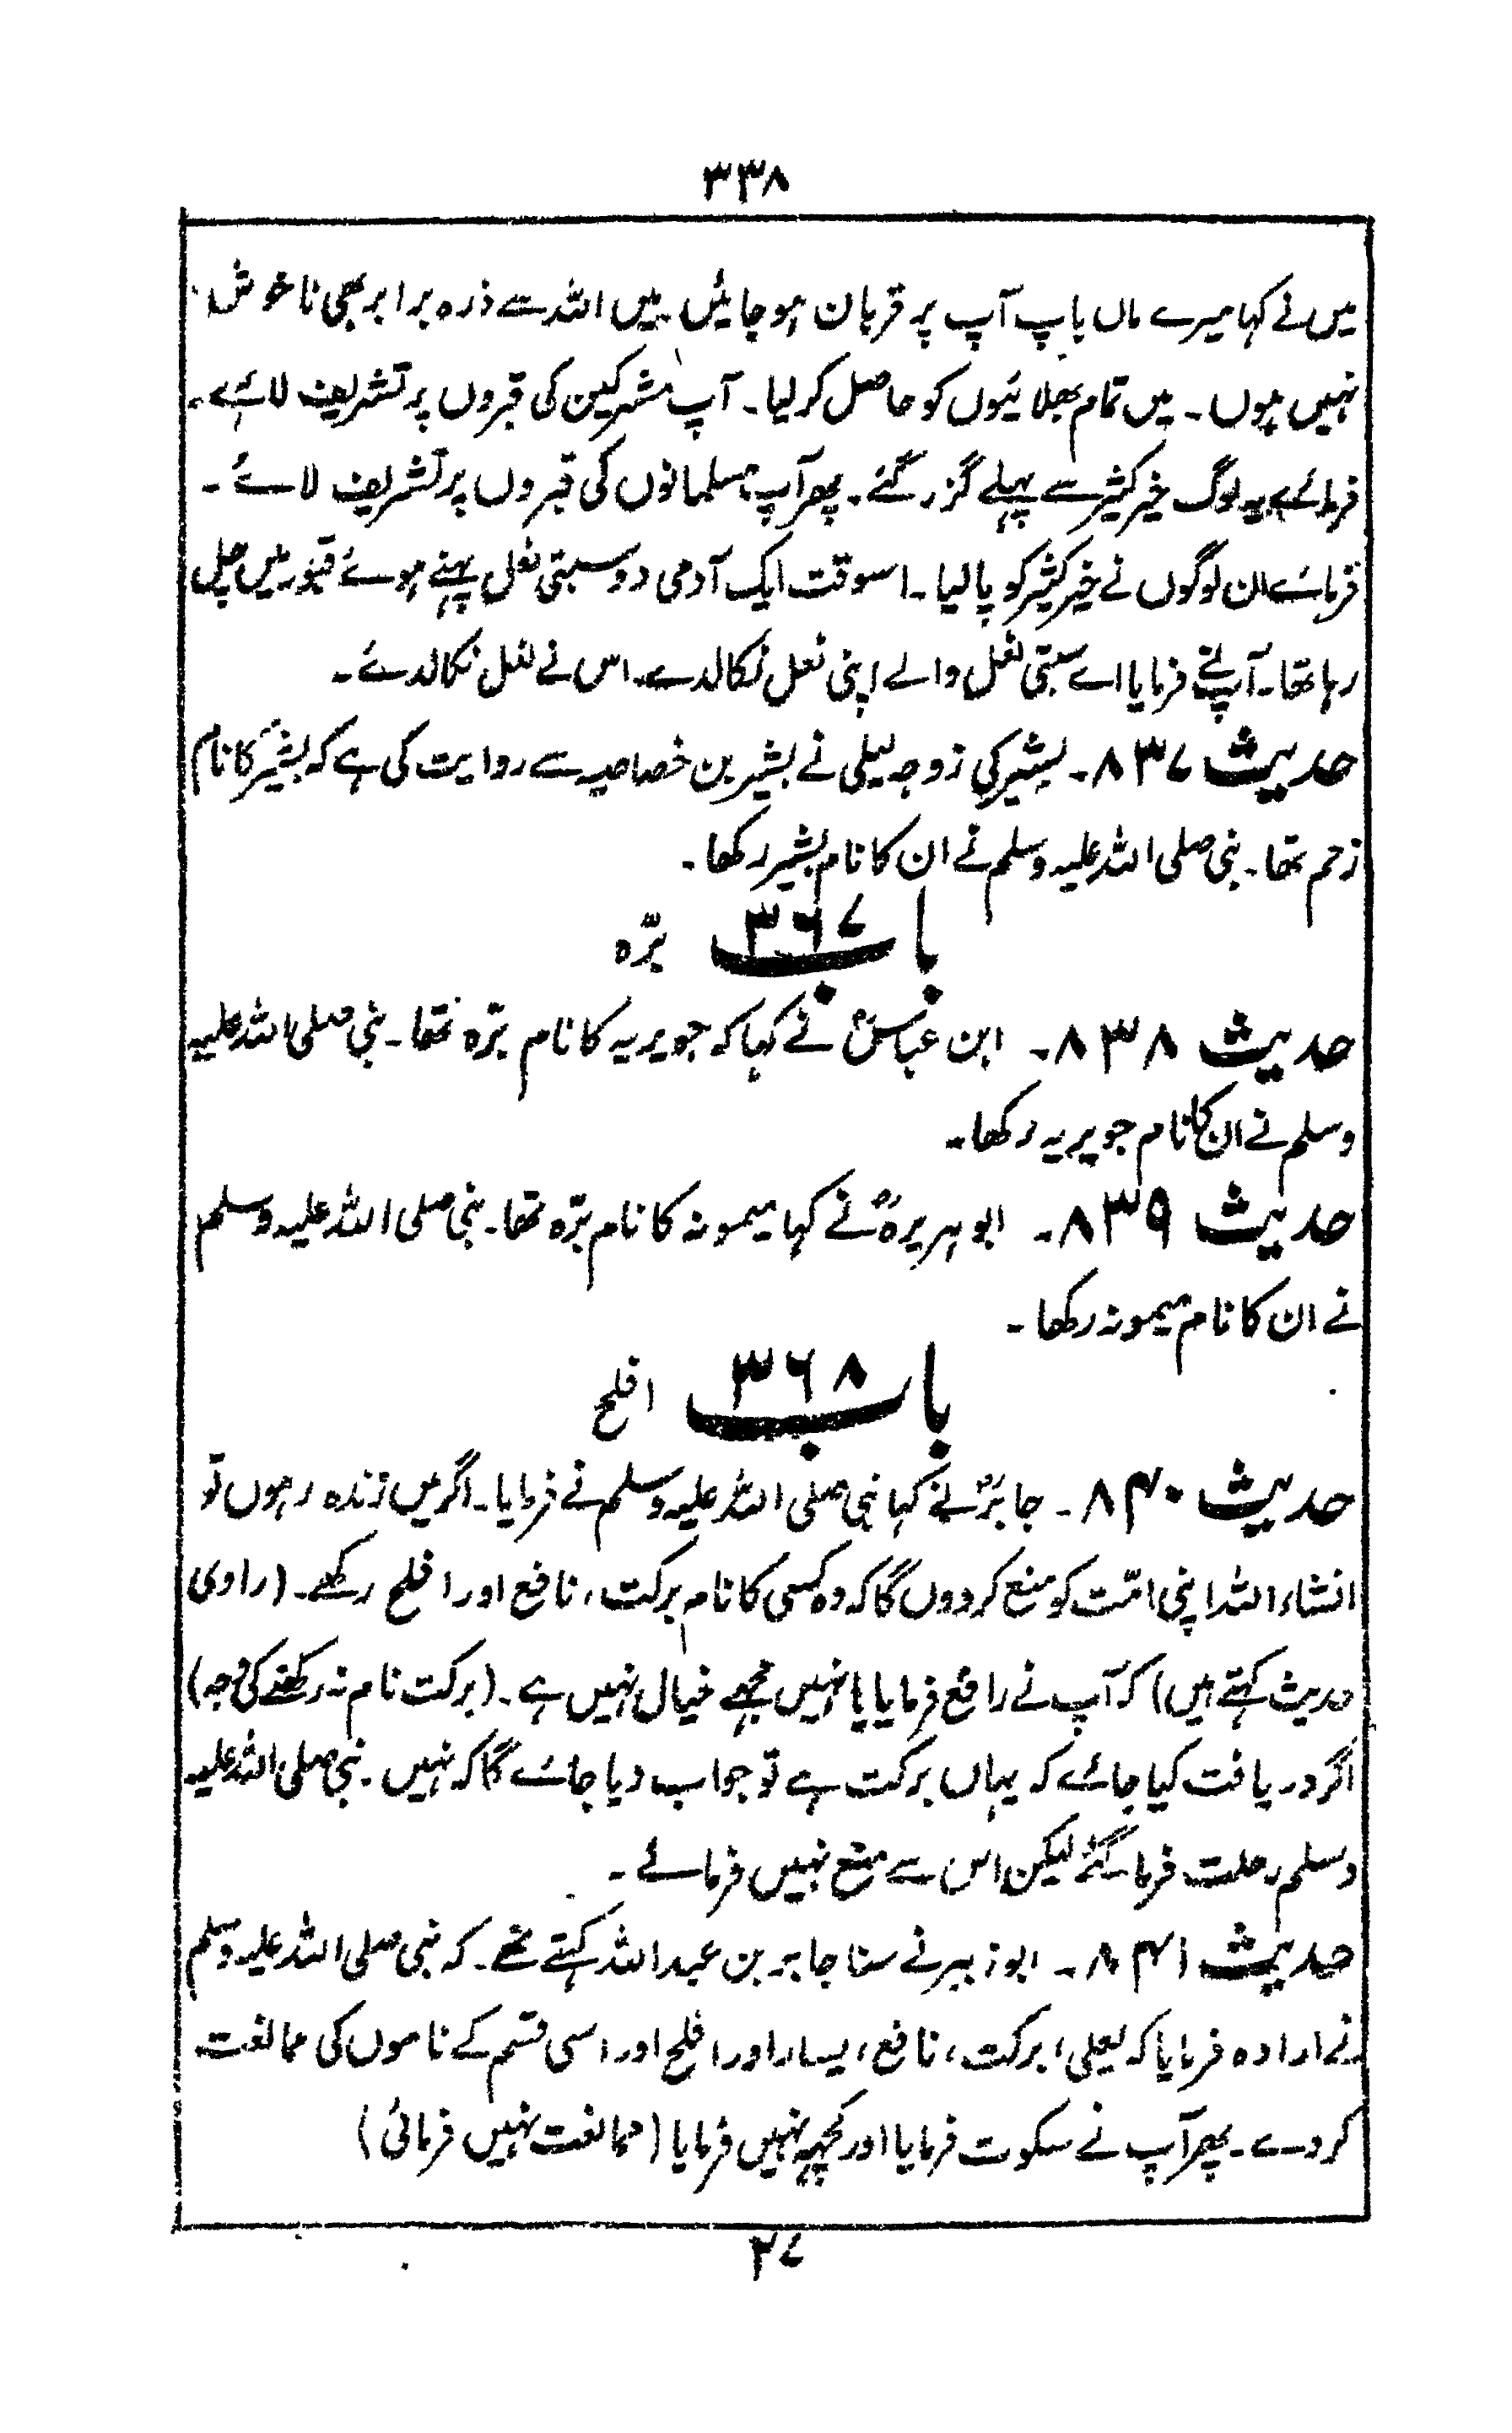 ۳۳۸
میں نے کہا میرے ماں باپ آپ پر قربان ہو جائیں۔ میں اللہ سے ذرہ برابر بھی ناخوش
نہیں ہوں۔ میں تمام بھلائیوں کو حاصل کرلیا۔ آپ مشرکین کی قبروں پر تشریف لائے۔
فرمائے یہ لوگ خیر کثیر سے پہلے گزر گئے۔ پھر آپ مسلمانوں کی قبروں پر تشریف لائے۔
فرمائے ان لوگوں نے خیر کثیر کو پالیا۔ اسوقت ایک آدمی دو سبتی نعل پہنے ہوئے قبور میں چل
رہا تھا۔ آپنے فرمایا اے سبتی نعل والے اپنی نعل نکالدے۔ اس نے نعل نکالدئے۔
حدیث ۸۳۷۔ بشیر کی زوجہ لیلی نے بشیر بن خصاصیہ سے روایت کی ہے کہ بشیرؓ کا نام
زحم تھا۔ نبی صلی اللہ علیہ وسلم نے ان کا نام بشیر رکھا۔
باب ۳۶۷ برّہ
حدیث ۸۳۸۔ ابن عباسؓ نے کہا کہ جویریہ کا نام برّہ تھا۔ نبی صلی اللہ علیہ
وسلم نے ان کا نام جویریہ رکھا۔
حدیث ۸۳۹۔ ابو ہریرہؓ نے کہا میمونہ کا نام برّہ تھا۔ نبی صلی اللہ علیہ وسلم
نے ان کا نام میمونہ رکھا۔
باب ۳۶۸ افلح
حدیث ۸۴۰۔ جابرؓ نے کہا نبی صلی اللہ علیہ وسلم نے فرمایا۔ اگر میں زندہ رہوں تو
انشاء اللہ اپنی امّت کو منع کردوں گا کہ وہ کسی کا نام برکت، نافع اور افلح رکھے۔ (راوی
حدیث کہتے ہیں) کہ آپ نے رافع فرمایا یا نہیں مجھے خیال نہیں ہے۔ (برکت نام نہ رکھنے کی وجہ)
اگر دریافت کیا جائے کہ یہاں برکت ہے تو جواب دیا جائے گا کہ نہیں۔ نبی صلی اللہ علیہ
وسلم رحلت فرماگئے لیکن اس سے منع نہیں فرمائے۔
حدیث ۸۴۱۔ ابو زبیر نے سنا جابر بن عبداللہ کہتے تھے۔ کہ نبی صلی اللہ علیہ وسلم
نے ارادہ فرمایا کہ یعلی، برکت، نافع، یسار اور افلح اور اسی قسم کے ناموں کی ممانعت
کردے۔ پھر آپ نے سکوت فرمایا اور کچھ نہیں فرمایا (ممانعت نہیں فرمائی)
۲۷